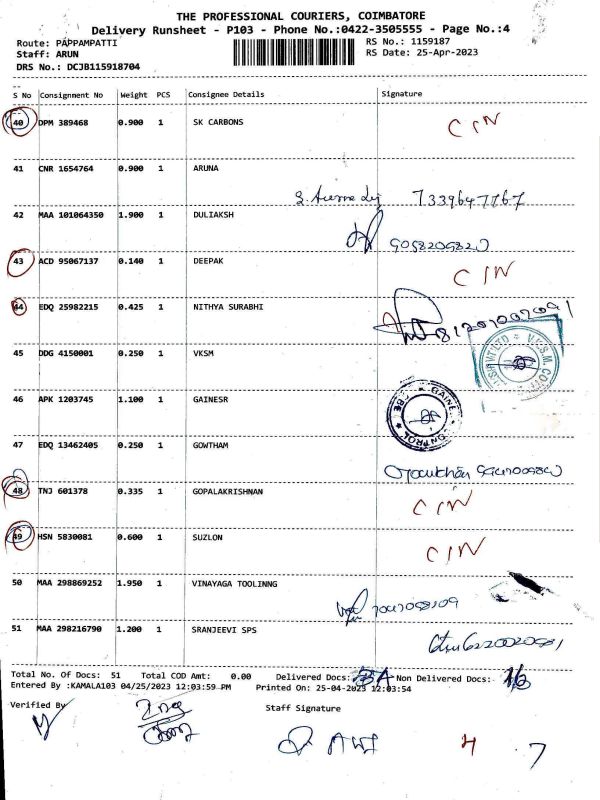 THE PROFESSIONAL COURIERS, COIMBATORE
Delivery Runsheet - P103 - Phone No.:0422-3505555 - Page No.:4
Route: PAPPAMPATTI RS No.: 1159187
Staff: ARUN RS Date: 25-Apr-2023
DRS No.: DCJB115918704
S No Consignment No Weight PCS Consignee Details Signature
40 DPM 389468 0.900 1 SK CARBONS CIN
41 CNR 1654764 0.900 1 ARUNA
7339647767
42 MAA 101064350 1.900 1 DULIAKSH
43 ACD 95067137 0.140 1 DEEPAK CIN
44 EDQ 25982215 0.425 1 NITHYA SURABHI
45 DDG 4150001 0.250 1 VKSM
46 APK 1203745 1.100 1 GAINESR
47 EDQ 13462405 0.250 1 GOWTHAM
48 TNJ 601378 0.335 1 GOPALAKRISHNAN CIN
49 HSN 5830081 0.600 1 SUZLON CIN
50 MAA 298869252 1.950 1 VINAYAGA TOOLINNG
51 MAA 298216790 1.200 1 SRANJEEVI SPS
Total No. Of Docs: 51 Total COD Amt: 0.00 Delivered Docs: Non Delivered Docs:
Entered By :KAMALA103 04/25/2023 12:03:59 PM Printed On: 25-04-2023 12:03:54
Verified By
Staff Signature
4 7